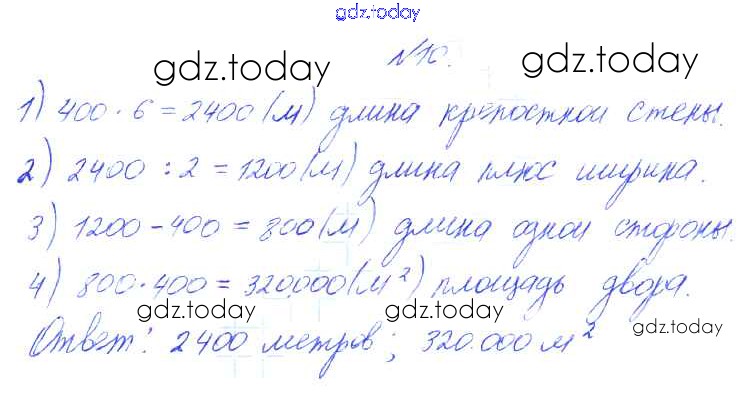 gdz.today
№10.
gdz.today gdz.today
1) 400 · 6 = 2400 (м) длина крепостной стены.
2) 2400 : 2 = 1200 (м) длина плюс ширина.
3) 1200 - 400 = 800 (м) длина одной стороны.
4) 800 · 400 = 320.000 (м²) площадь двора.
gdz.today gdz.today
Ответ: 2400 метров; 320.000 м²
gdz.today